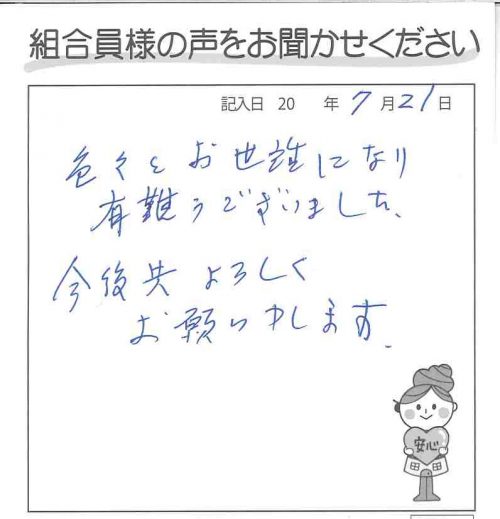 組合員様の声をお聞かせください
記入日 20 年 7 月 21 日
色々とお世話になり
有難うございました、
今後共よろしく
お願い申します.
安心